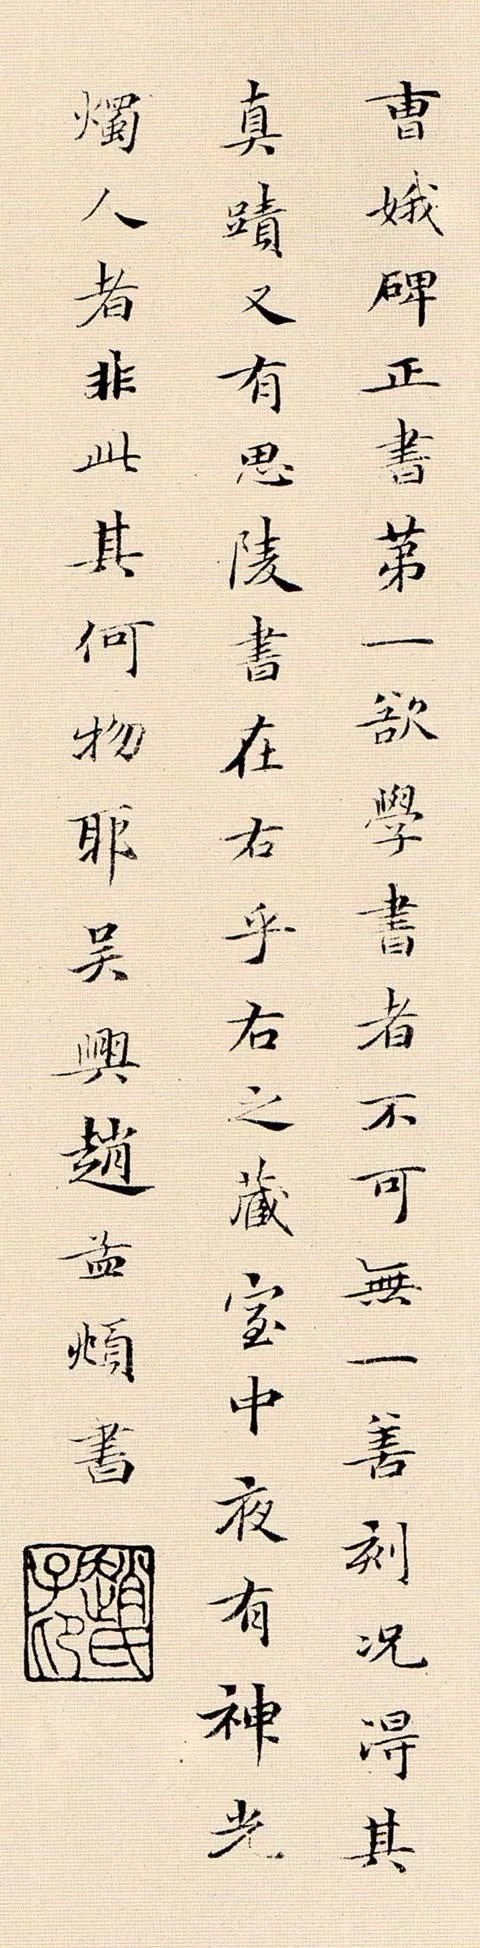 曹娥碑正書苐一欲學書者不可無一善刻况得其
真蹟又有思陵書在右乎右之藏室中夜有神光
燭人者非此其何物耶吴興趙孟頫書
趙氏子印